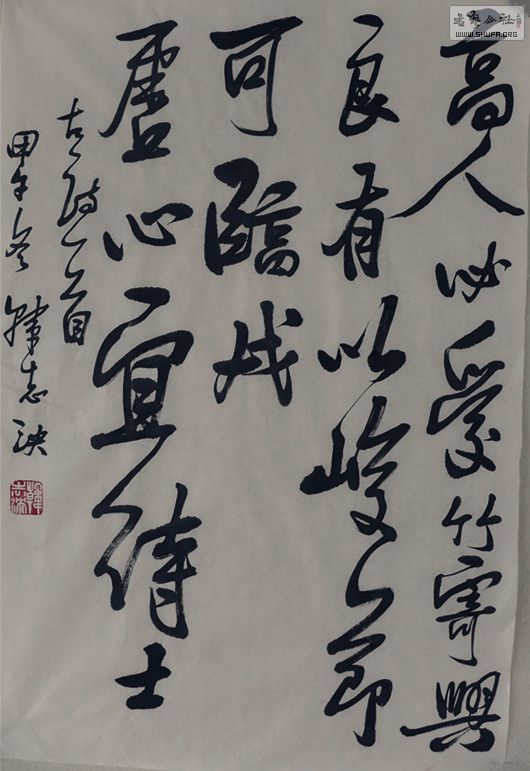 高人必爱竹寄興
良有以峻节
可臨戎
虚心宜待士
古诗一首
甲午冬 韓志
书艺公社
WWW.SHUFA.ORG